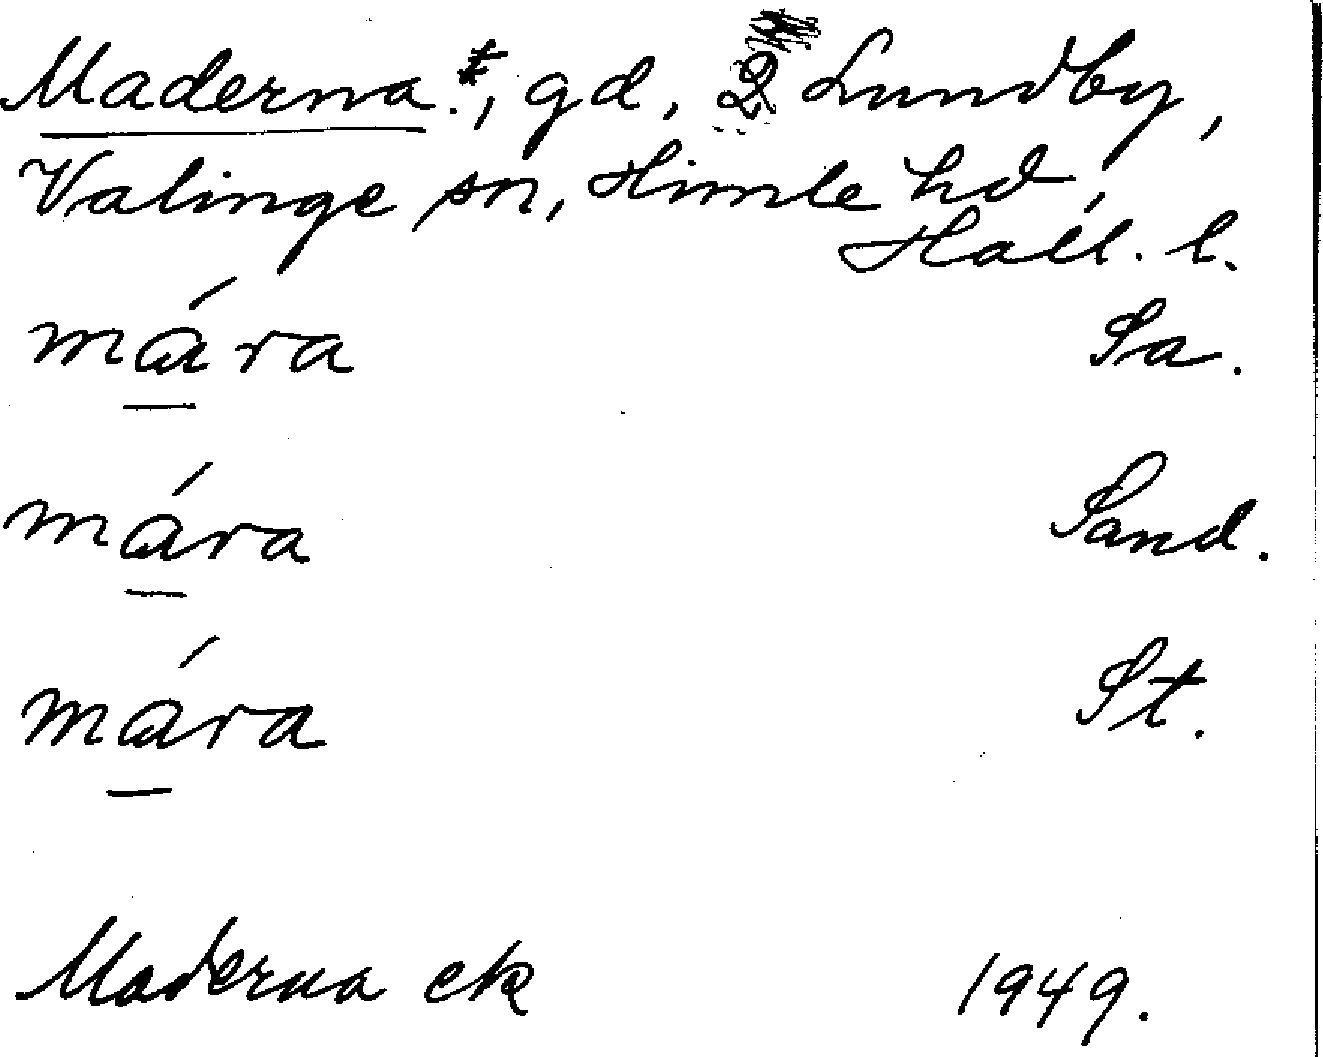 Maderna ‡, gd, 2 Lundby,
Valinge sn, Himle hd,
Hall. l.
mára Sa.
mára Sand.
mára St.
Maderna ek 1949.